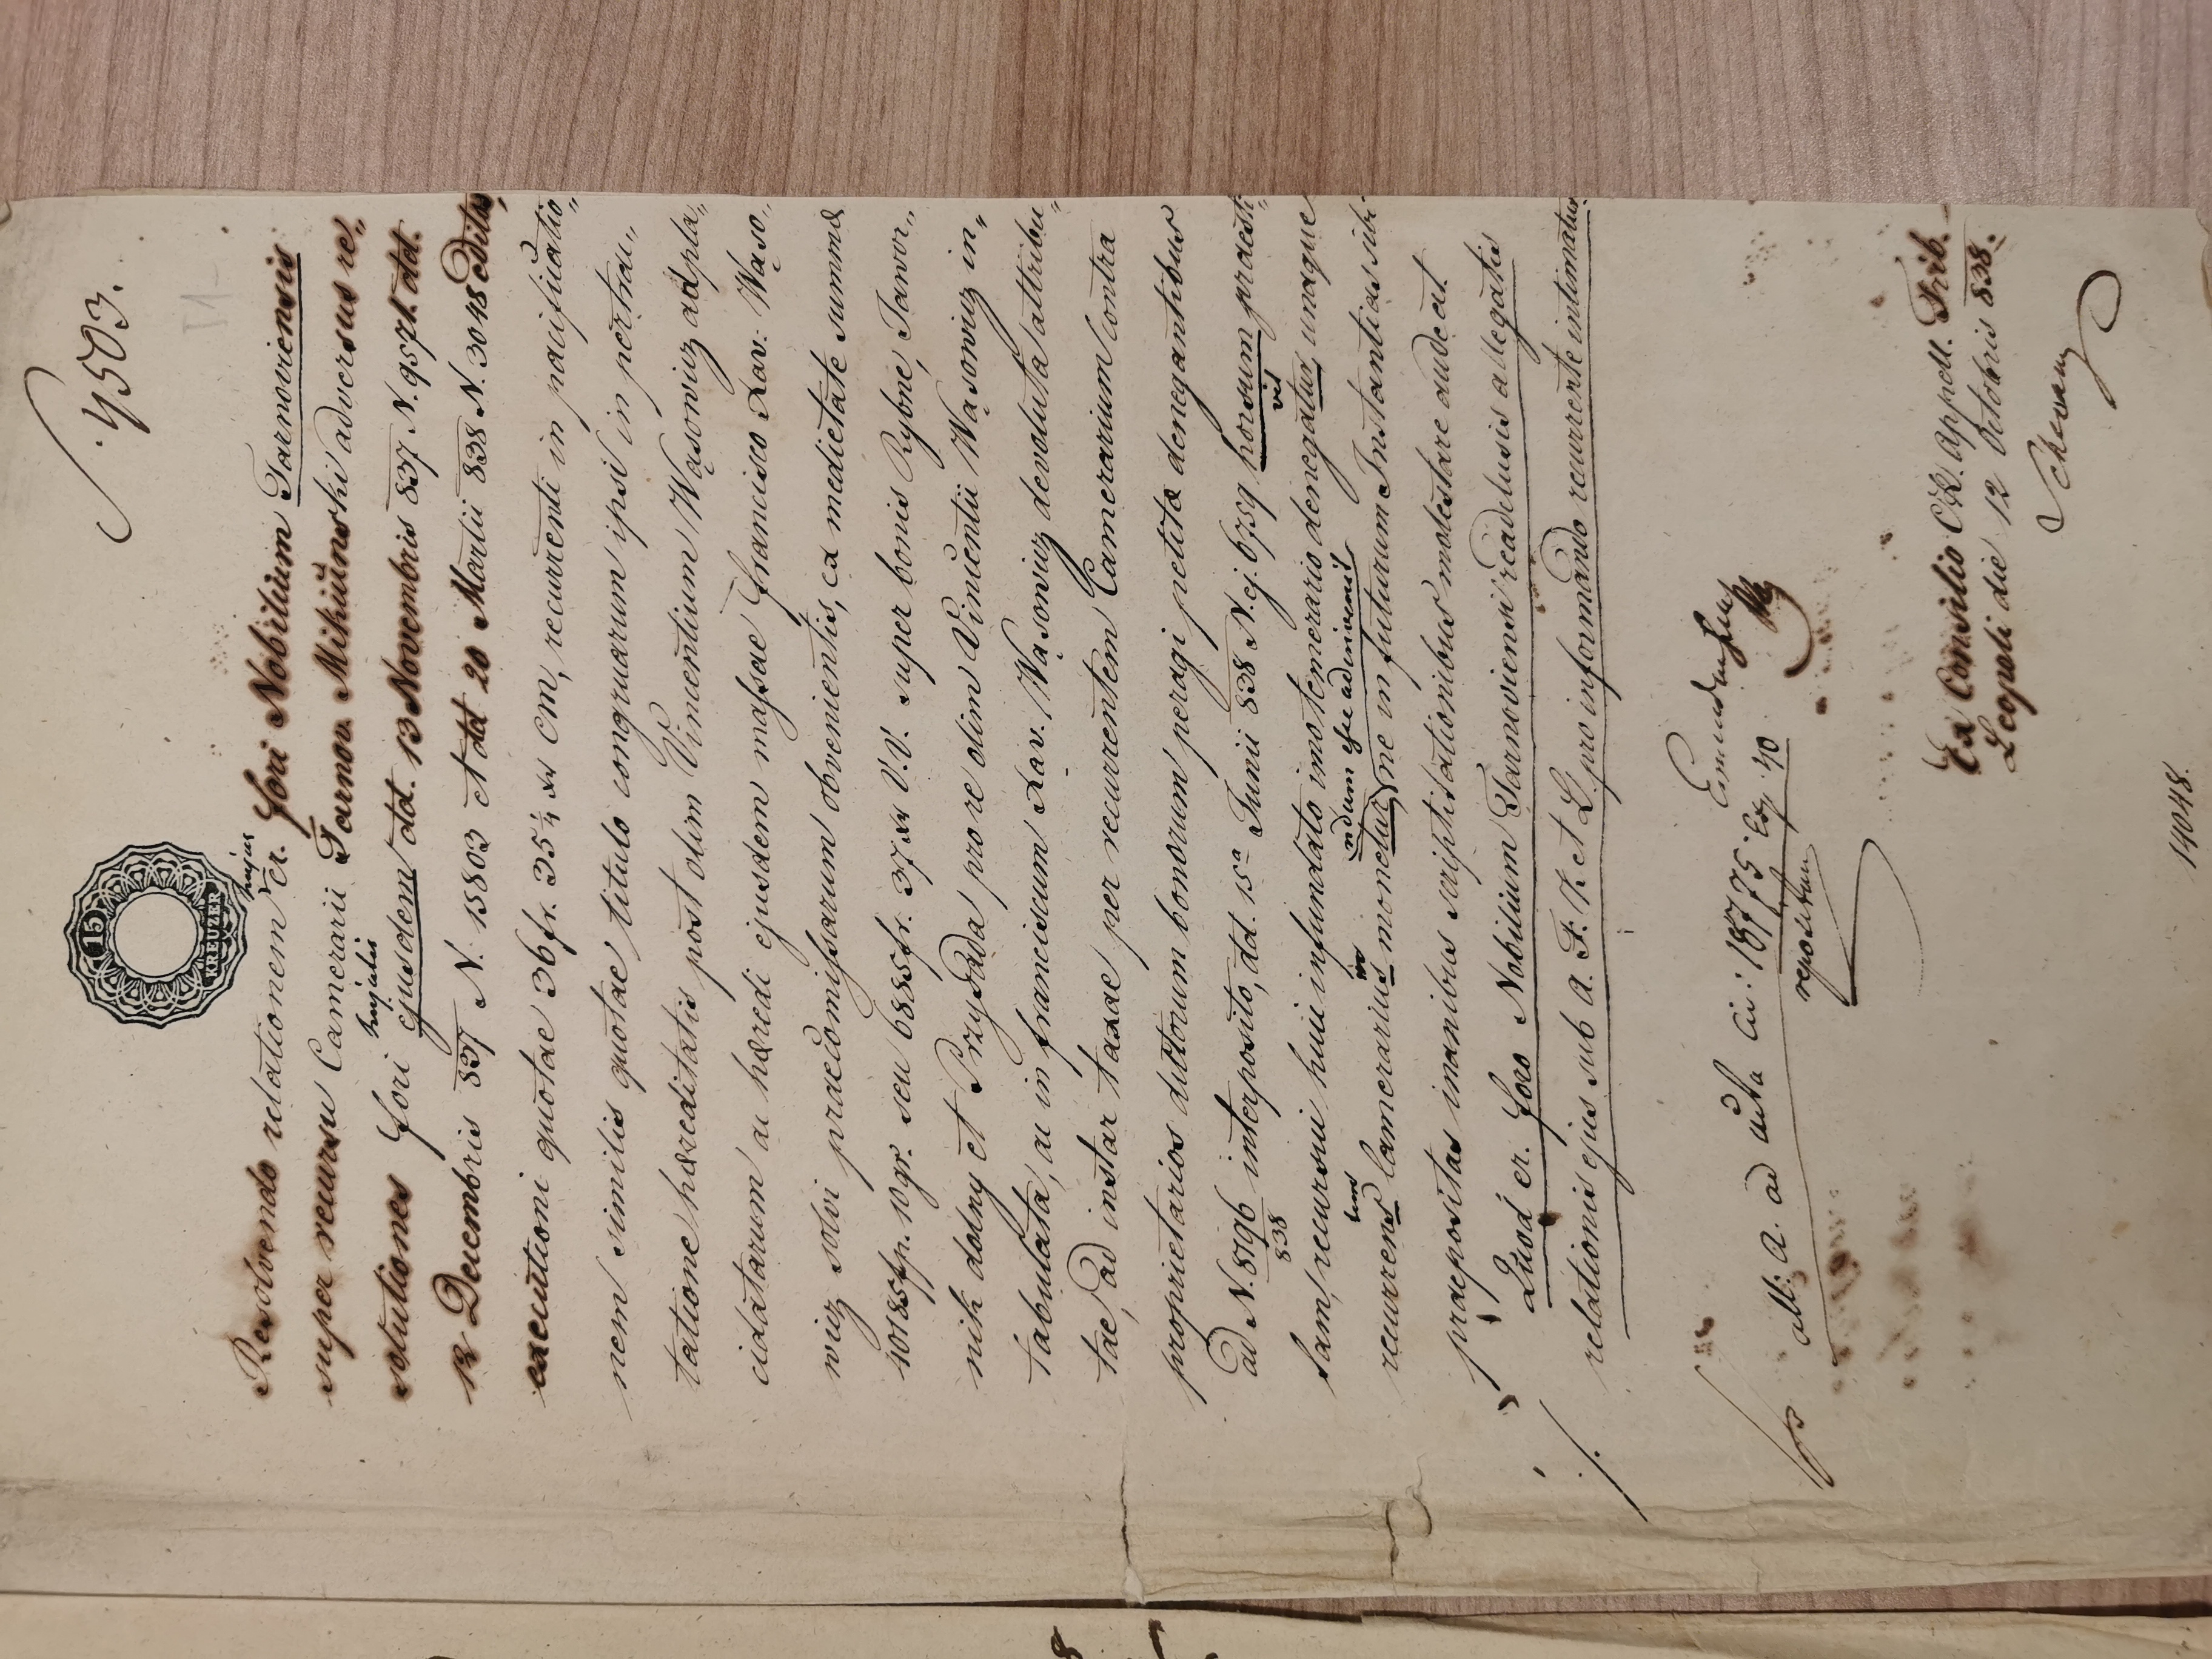 4503.
15
KREUZER
hujus
Resolvendo relationem cr. Fori Nobilium Tarnoviensis
super recursu Camerarii Tarnov. Mikuński adversus re„
hujatis
solutiones Fori ejusdem ddt. 13 Novembris 837 N. 9571. ddt.
12 Decembris 837 N. 15803 et ddt 20 Martii 838 N. 3048 editas,
executioni quotae 36 fr. 35¼ xr CM, recurrenti in pacificatio„
nem similis quotae titulo congruarum ipsi in pertrac„
tatione hæreditatis post olim Vincentium Wąsowicz adpla„
cidatarum ac hæredi ejusdem massae Francisco Xav. Wąso„
wicz solvi praecomissarum obvenientis, ex medietate summæ
10185 fp. 10 gr. seu 6885 fr. 37 xr V.V. super bonis Rybne, Jawor„
nik dolny et Przysada pro re olim Vincentii Wąsowicz in„
tabulata, ac in Franciscum Xav. Wąsowicz devoluta attribu„
tae, ad instar taxae per recurrentem Camerarium contra
proprietarios dictorum bonorum peragi petitæ denegantibus
ad N. 8796/838 interposito, ddt. 15ª Junii 838 N. ej. 6759 horsum praesti„
vit
tam, recursui huic infundato imo temerario denegatur, unaque
tem um ndum esse adinvenit
recurrens Camerarius monetur, ne in futurum Instantias sibi
praepositas inanibus scriptitationibus molestare audeat.
Quod cr. Foro Nobilium Tarnoviensi readclusis allegatis
relationis ejus sub a. F. K et L pro informando recurrente intimatur.
./.
all: a. ad acta Civ: 18775 Ex 40
repositum
Ex Consilio C.R. Appell. Trib.
Leopoli die 12 Octobris 838.
14048.